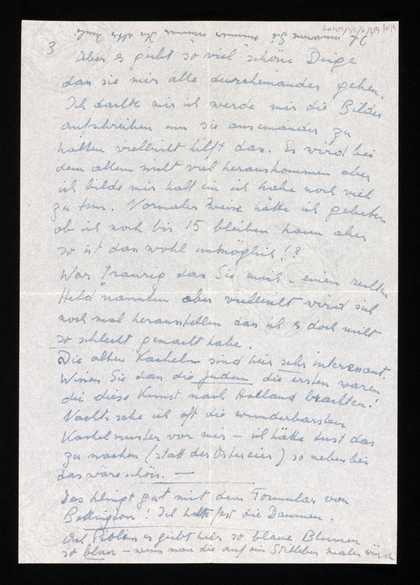 3
Aber es giebt so viel schöne Dinge
dass sie mir alle durcheinander gehen.
Ich dachte mir ich werde mir die Bilder
aufschreiben um sie auseinander zu
halten vielleicht hilft das. Es wird bei
dem allem nicht viel herauskommen aber
ich bilde mir halt ein ich habe noch viel
zu tun. Normaler Weise hätte ich gebeten
ob ich noch bis 15 bleiben kann aber
so ist das wohl unmöglich!?
War traurig das Sie mich - einen rechten
Held nannten aber vielleicht wird sich
noch mal herausstellen das ich es doch nicht
so schlecht gemacht habe.
Die alten Kacheln sind hier sehr interessant.
Wissen Sie dan die Juden die ersten waren
die diese Kunst nach Holland brachten!
Nachts sehe ich oft die wunderbarsten
Kachelmuster vor mir - ich hätte Lust das
zu machen (statt der Ostereier) so neben bei
das wäre schön. -
Das klingt gut mit dem Formular von
Ich halte fest die Daumen.
es giebt hier so blaue Blumen
so blau - wenn man die auf ein Stilleben malen würde